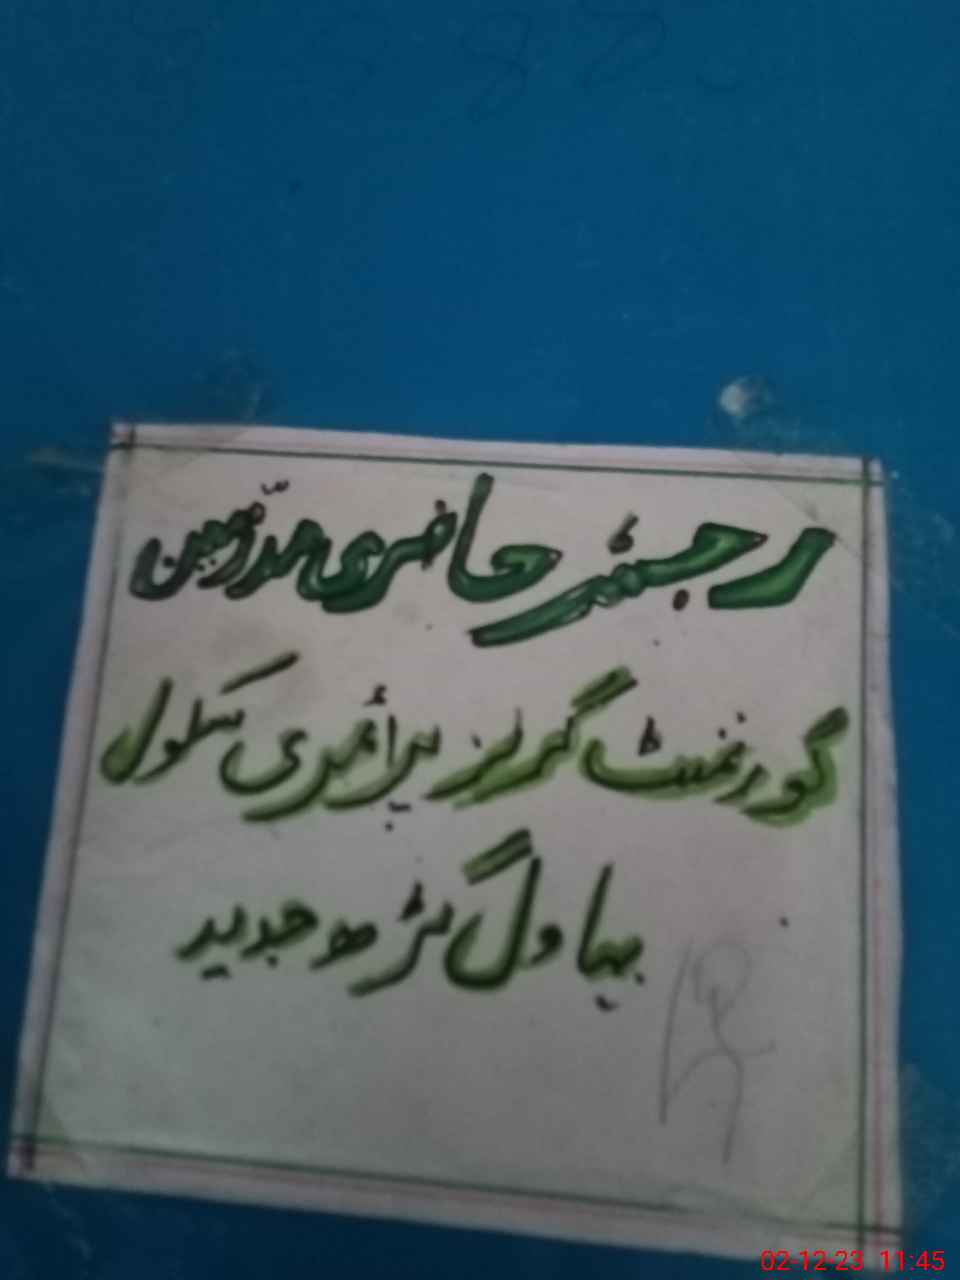 رجسٹر حاضری مدرسین
گورنمنٹ گرلز پرائمری سکول
بہاول گڑھ جدید
02-12-23 11:45